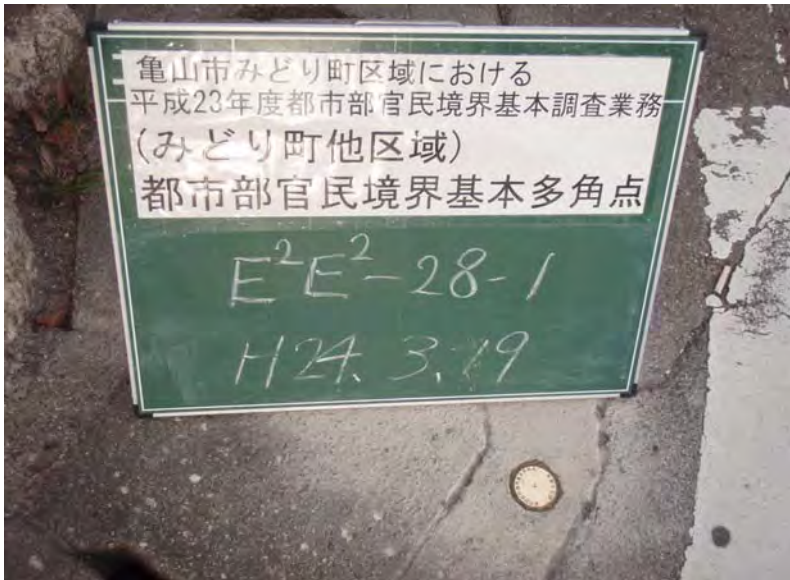 亀山市みどり町区域における
平成23年度都市部官民境界基本調査業務
(みどり町他区域)
都市部官民境界基本多角点
E²E²-28-1
H24.3.19